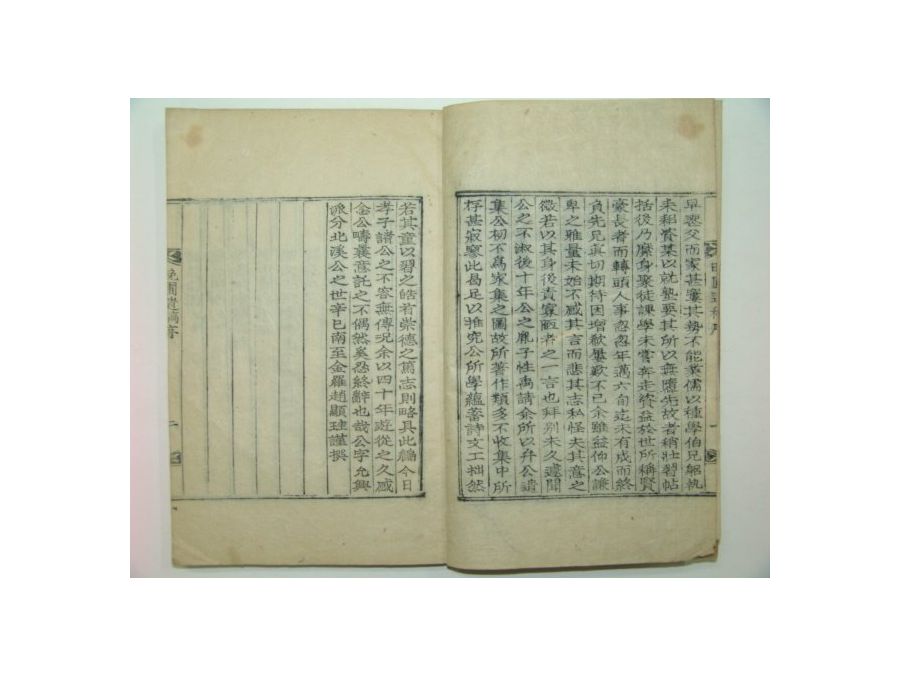 早喪父而家甚窶其勢不能業儒以種學伯兄躬執
耒耜資某以就塾要其所以無應先故者稍壯習帖
括後乃縻身聚徒課學未嘗奔走資益於世所稱賢
豪長者而轉頭人事忽忽年邁六旬迄未有成而終
負先兄眞切期待因增歔欷不已余雖益仰公謙
卑之雅量未始不感其言而悲其志私怪夫其意之
微若以其身後責寡陋者之一言也拜別未久遽聞
公之不淑後十年公之胤子性禹請余所以弁公遺
集公初不爲家集之圖故所著作類多不收集中所
存甚寂寥此曷足以雅究公所學蘊蓄詩文工拙然
若其童以習之皓首崇德之篤志則略具此編今日
孝子諸公之不容無傳況余以四十年遊從之久感
念公疇曩意託之不偶然奚忍終辭也哉公字允興
派分北溪公之世辛巳南至金羅趙顯珪謹撰
晩圃遺稿序 二